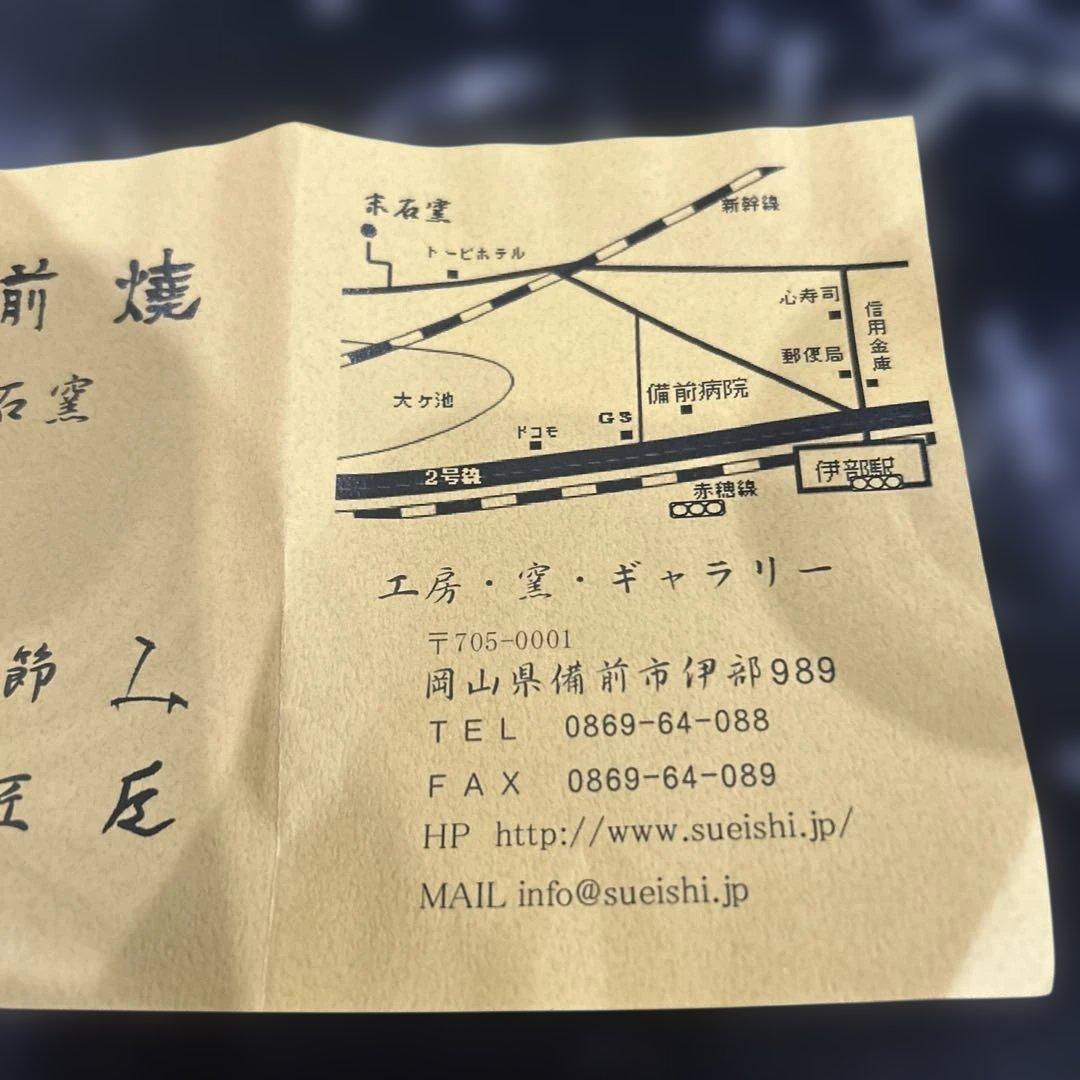 前 燒
石窯
末石窯
新幹線
トービホテル
心寿司
信用金庫
郵便局
大ヶ池
備前病院
GS
ドコモ
2号線
伊部駅
赤穂線
工房・窯・ギャラリー
〒705-0001
岡山県備前市伊部989
TEL 0869-64-088
FAX 0869-64-089
HP http://www.sueishi.jp/
MAIL info@sueishi.jp
節
匠